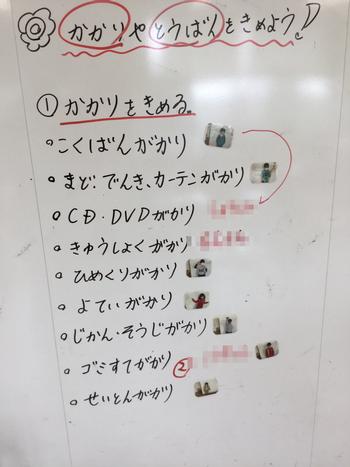 かかりやとうばんをきめよう!
①かかりをきめる。
・こくばんがかり
・まど・でんき、カーテンがかり
・CD・DVDがかり
・きゅうしょくがかり
・ひめくりがかり
・よていがかり
・じかん・そうじがかり
・ゴミすてがかり ②
・せいとんがかり